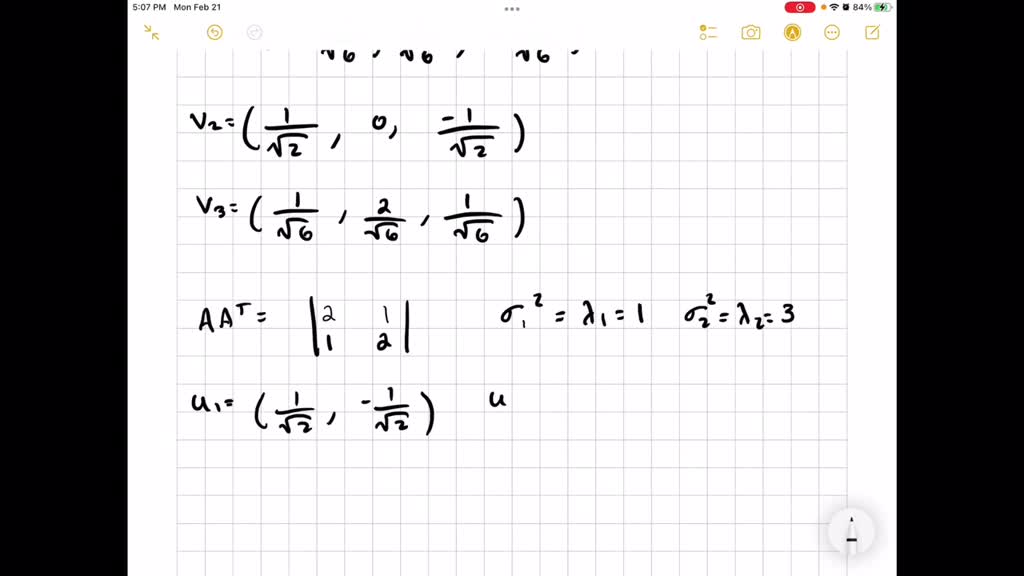 5:07 PM Mon Feb 21
84%
√6 , √6 , √6 .
V₂ = (1/√2, 0, -1/√2)
V₃ = (1/√6, 2/√6, 1/√6)
AAᵀ = |2 1| σ₁² = λ₁ = 1 σ₂² = λ₂ = 3
|1 2|
u₁ = (1/√2, -1/√2) u